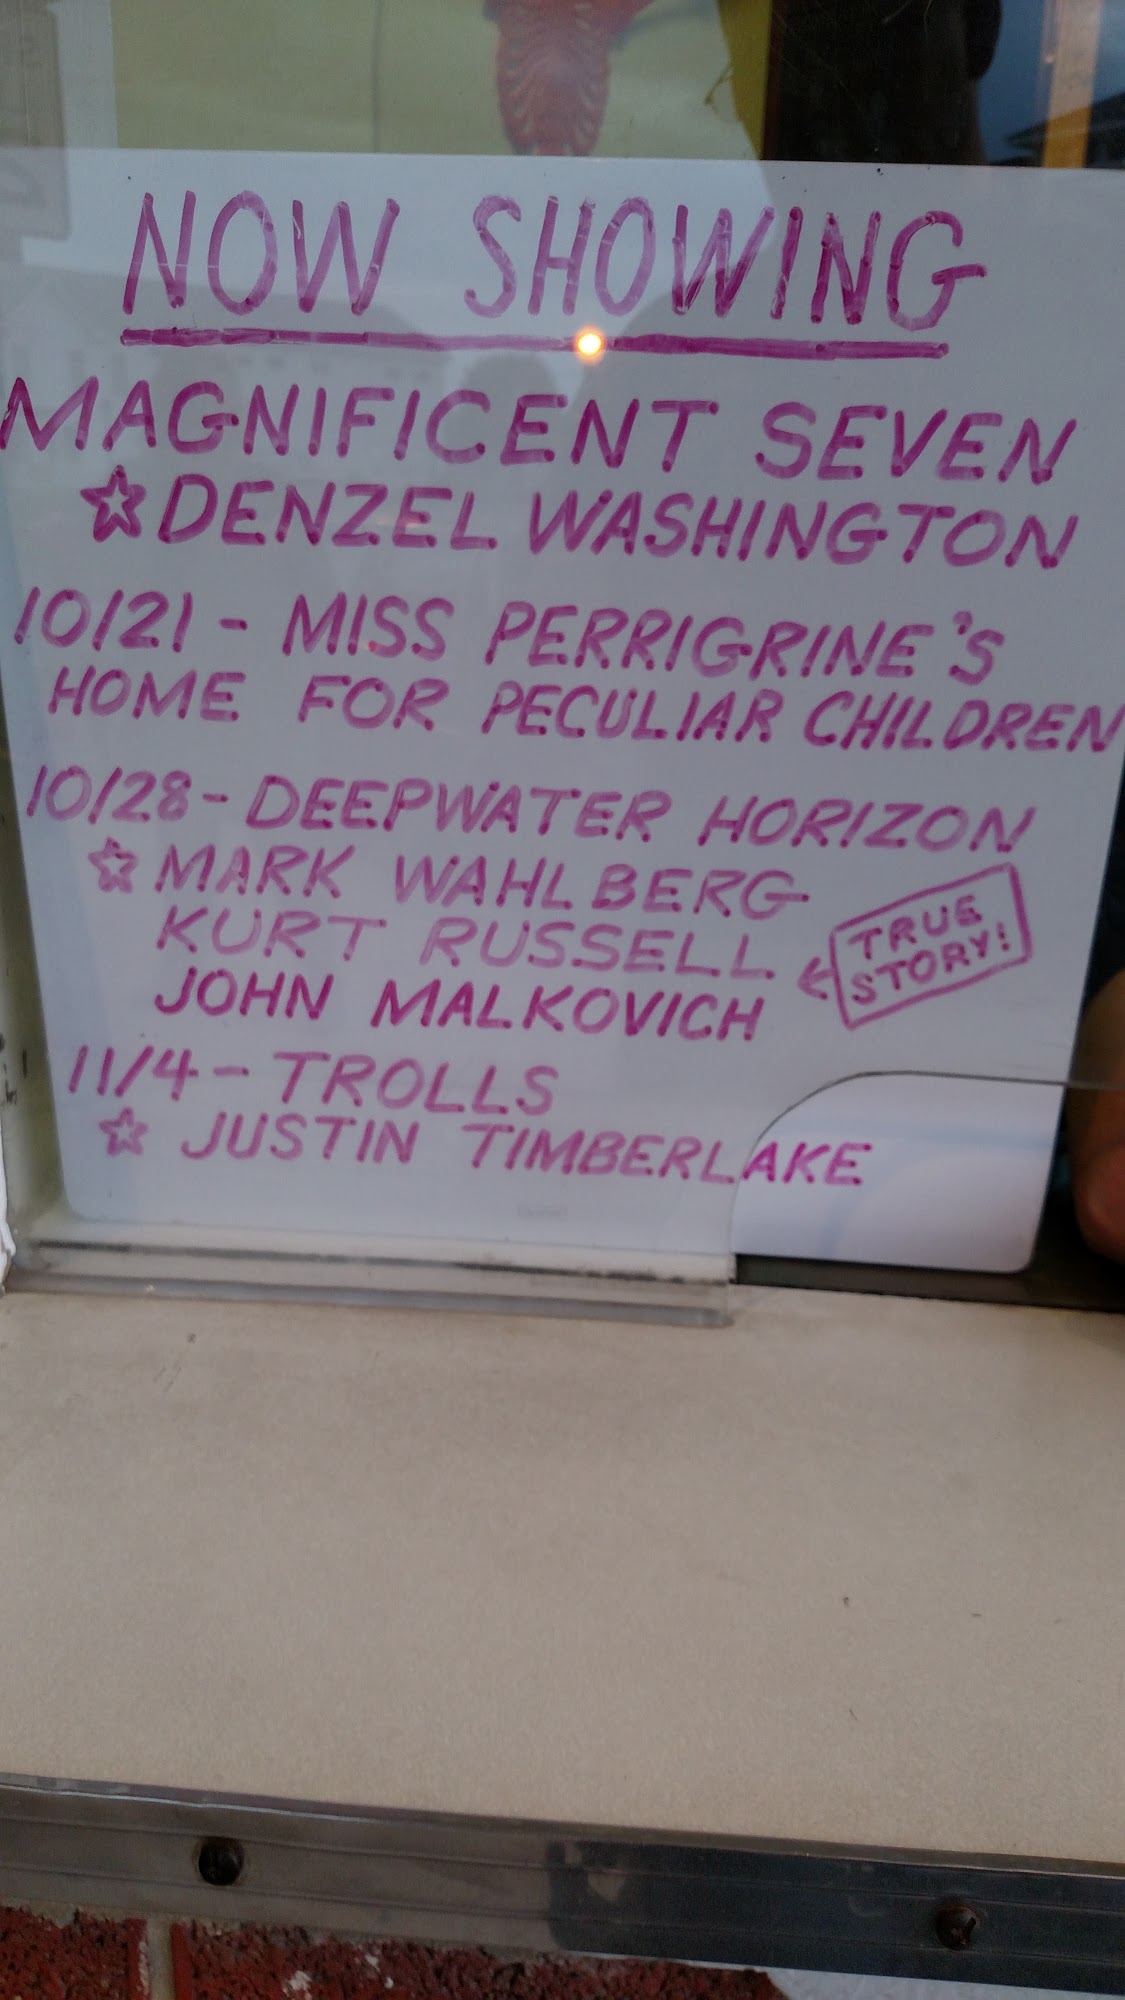 NOW SHOWING
MAGNIFICENT SEVEN
☆ DENZEL WASHINGTON
10/21 - MISS PERRIGRINE'S
HOME FOR PECULIAR CHILDREN
10/28 - DEEPWATER HORIZON
☆ MARK WAHLBERG
KURT RUSSELL
JOHN MALKOVICH
← TRUE
STORY!
11/4 - TROLLS
☆ JUSTIN TIMBERLAKE